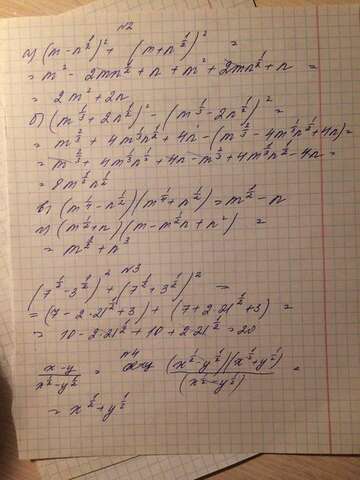 №2
а) (m-n^½)² + (m+n^½)² =
= m² - 2mn^½ + n + m² + 2mn^½ + n =
= 2m² + 2n
б) (m^⅓ + 2n^½)² - (m^⅓ - 2n^½)² =
= m^⅔ + 4m^⅓n^½ + 4n - (m^⅔ - 4m^⅓n^½ + 4n) =
= m^⅔ + 4m^⅓n^½ + 4n - m^⅔ + 4m^⅓n^½ - 4n =
= 8m^⅓n^½
в) (m^¼ - n^½)(m^¼ + n^½) = m^½ - n
г) (m^½ + n)(m - m^½n + n²) =
= m^(3/2) + n³
№3
(7^½ - 3^½)² + (7^½ + 3^½)² =
= (7 - 2·21^½ + 3) + (7 + 2·21^½ + 3) =
= 10 - 2·21^½ + 10 + 2·21^½ = 20
№4
(x-y)/(x^½ - y^½) = (x^½ - y^½)(x^½ + y^½)/(x^½ - y^½) =
= x^½ + y^½